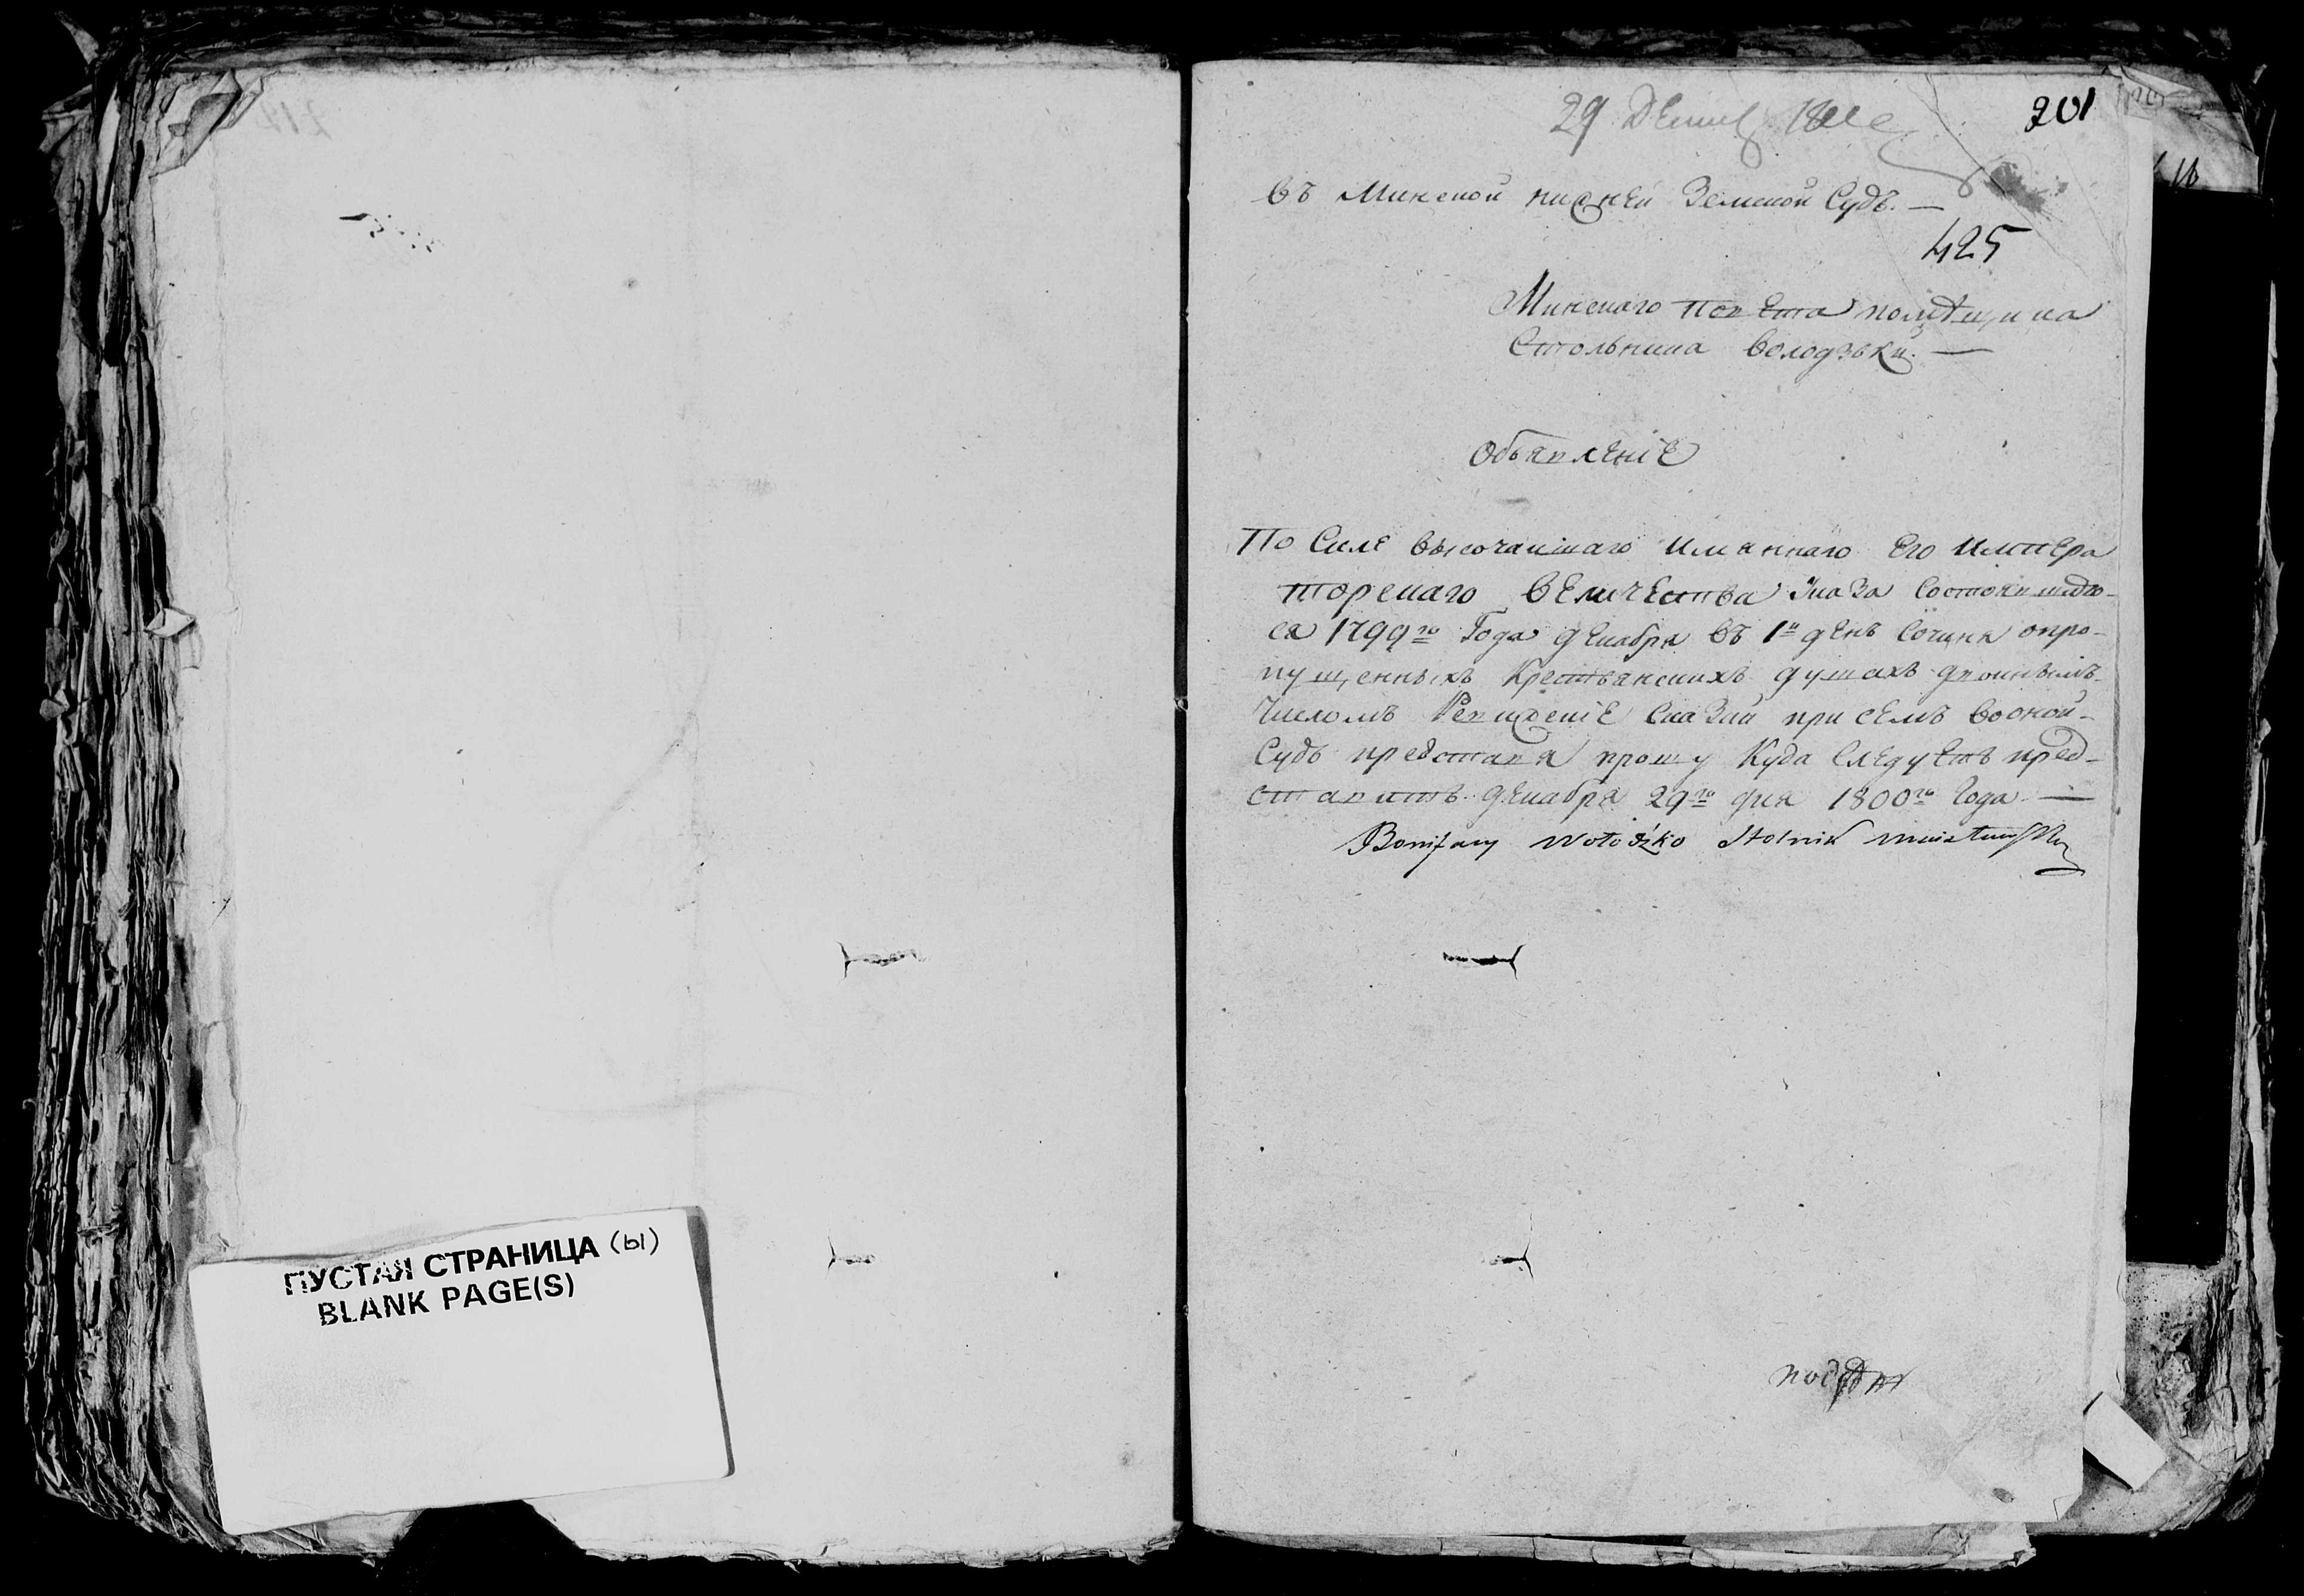 ПУСТАЯ СТРАНИЦА (ы)
BLANK PAGE(S)
29 Декаб 1800
201
въ Минской нижней Земской Судъ. —
425
Минскаго повета помѣщика
Стольника Володзьки. —
Объявленіе
По Силе высочаишаго имяннаго Его Импера
торскаго величества Указа состоявшаго-
ся 1799го Года декабря въ 1й день сочиня опро-
пущенныхъ Крестьянскихъ душахъ двоинымъ
числомъ Ревижскіе Сказки при семъ во оной-
Судъ представя прошу Куда Следуетъ пред-
ставить. декабря 29го дня 1800го Года. —
Bonifacy Wołodźko Stolnik